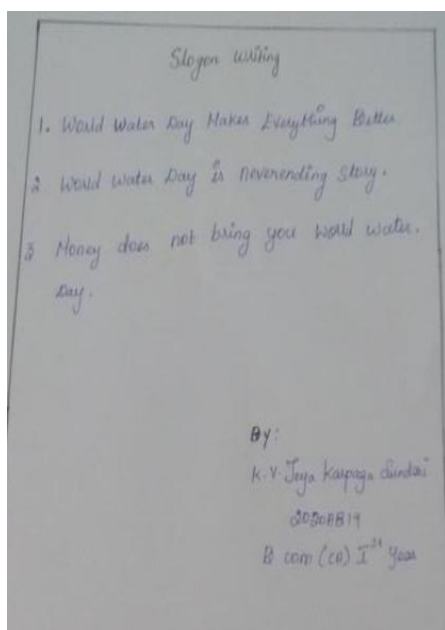 Slogan writing
1. World Water Day Makes Everything Better
2 World Water Day is neverending story.
3 Money does not bring you world water.
Day.
By:
K.V. Jeya Karpaga Sundari
B com (CA) Ist Year